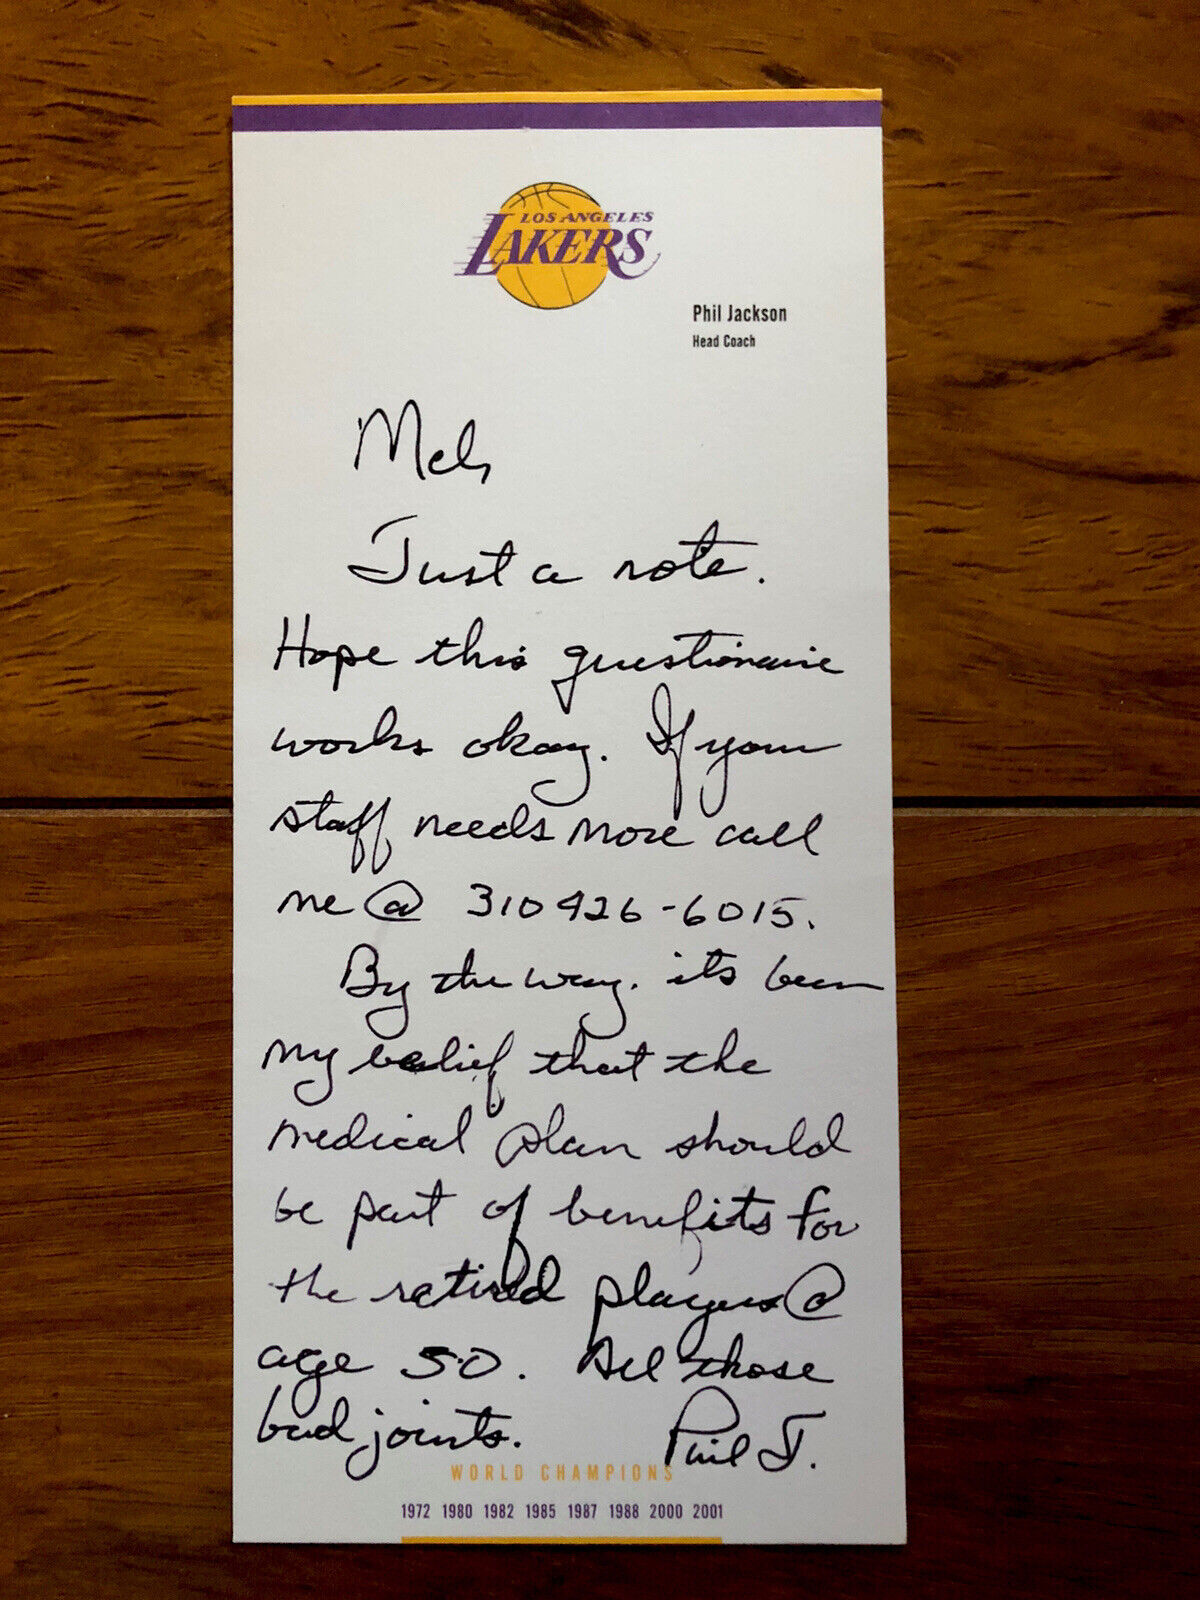 LOS ANGELES
LAKERS
Phil Jackson
Head Coach
Mel,
Just a note.
Hope this questionaire
works okay. If your
staff needs more call
me @ 310 426-6015.
By the way. its been
my belief that the
medical plan should
be part of benefits for
the retired players @
age 50. All those
bad joints. Phil J.
WORLD CHAMPIONS
1972 1980 1982 1985 1987 1988 2000 2001